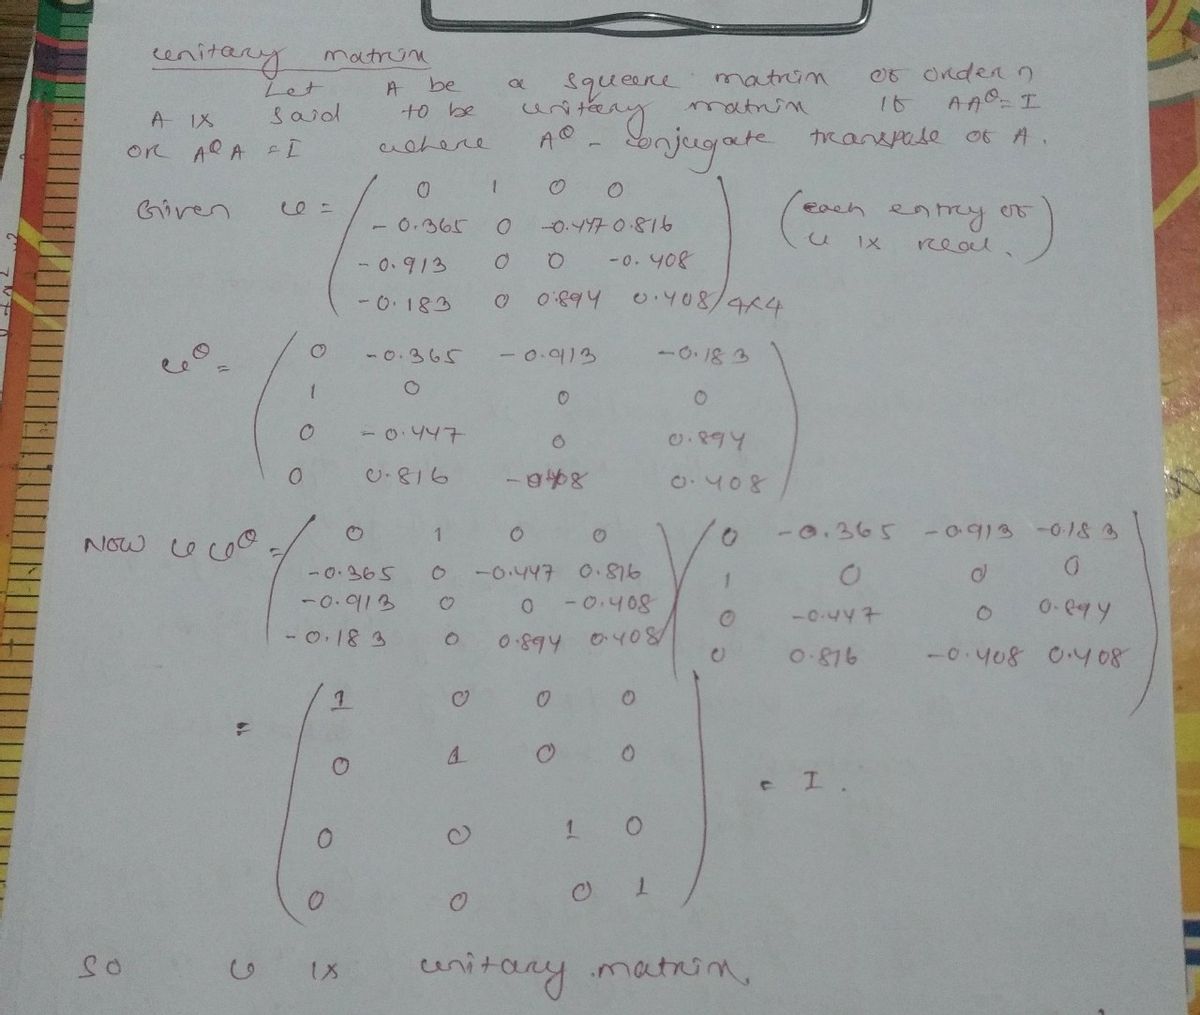 unitary matrix
Let A be a square matrix of order n
A is said to be unitary matrix if AA^θ = I
or A^θ A = I where A^θ - conjugate transpose of A.
Given U = ( 0 1 0 0 (each entry of
-0.365 0 -0.447 0.816 U is real.)
-0.913 0 0 -0.408
-0.183 0 0.894 0.408 ) 4×4
U^θ = ( 0 -0.365 -0.913 -0.183
1 0 0 0
0 -0.447 0 0.894
0 0.816 -0.408 0.408 )
Now U U^θ = ( 0 1 0 0 ) ( 0 -0.365 -0.913 -0.183
-0.365 0 -0.447 0.816 1 0 0 0
-0.913 0 0 -0.408 0 -0.447 0 0.894
-0.183 0 0.894 0.408 0 0.816 -0.408 0.408 )
= ( 1 0 0 0
0 1 0 0 = I.
0 0 1 0
0 0 0 1 )
So U is unitary matrix.